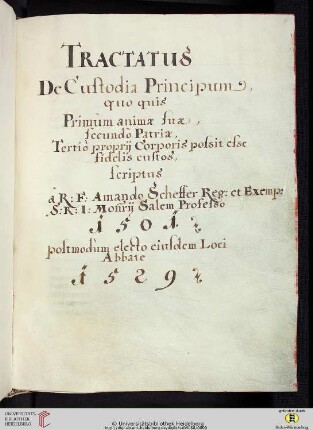 TRACTATUS
De Custodia Principum,
quo quis
Primùm animæ suæ,
secundò Patriæ,
Tertiò proprij Corporis possit esse
fidelis custos,
scriptus
à R: F: Amando Scheffer Reg: et Exemp:
S: R: I: Monrij Salem Professo
1501
postmodum electo eiusdem Loci
Abbate
1529
UNIVERSITÄTS-
BIBLIOTHEK
HEIDELBERG
© Universitätsbibliothek Heidelberg